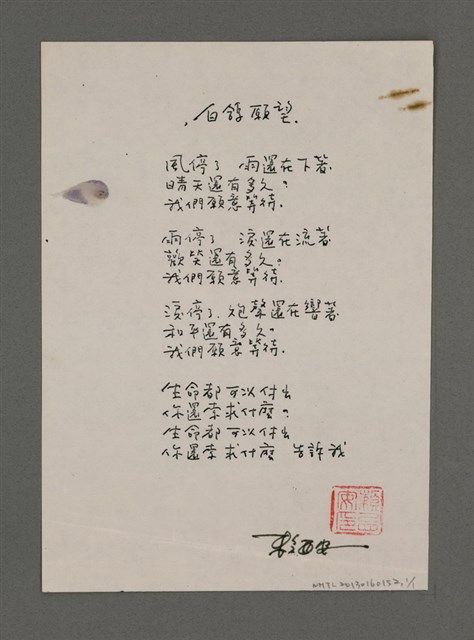 白鴿願望
風停了 雨還在下著
晴天還有多久?
我們願意等待.
雨停了 淚還在流著
歡笑還有多久?
我們願意等待.
淚停了,炮聲還在響著
和平還有多久?
我們願意等待.
生命都可以付出
你還索求什麼?
生命都可以付出
你還索求什麼 告訴我
NMTL20130160152, 1/1